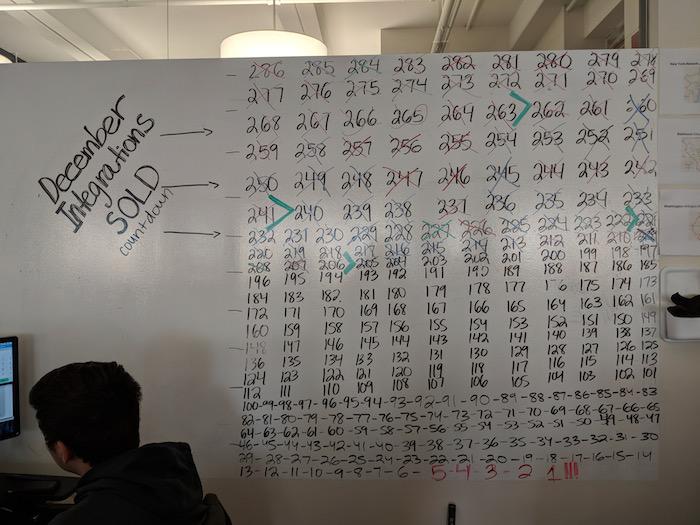 December
Integrations
SOLD
countdown
286 285 284 283 282 281 280 279 278
277 276 275 274 273 272 271 270 269
268 267 266 265 264 263 262 261 260
259 258 257 256 255 254 253 252 251
250 249 248 247 246 245 244 243 242
241 240 239 238 237 236 235 234 233
232 231 230 229 228 227 226 225 224 223 222 221
220 219 218 217 216 215 214 213 212 211 210 209
208 207 206 205 204 203 202 201 200 199 198 197
196 195 194 193 192 191 190 189 188 187 186 185
184 183 182 181 180 179 178 177 176 175 174 173
172 171 170 169 168 167 166 165 164 163 162 161
160 159 158 157 156 155 154 153 152 151 150 149
148 147 146 145 144 143 142 141 140 139 138 137
136 135 134 133 132 131 130 129 128 127 126 125
124 123 122 121 120 119 118 117 116 115 114 113
112 111 110 109 108 107 106 105 104 103 102 101
100-99-98-97-96-95-94-93-92-91-90-89-88-87-86-85-84-83
82-81-80-79-78-77-76-75-74-73-72-71-70-69-68-67-66-65
64-63-62-61-60-59-58-57-56-55-54-53-52-51-50-49-48-47
46-45-44-43-42-41-40-39-38-37-36-35-34-33-32-31-30
29-28-27-26-25-24-23-22-21-20-19-18-17-16-15-14
13-12-11-10-9-8-7-6-5-4-3-2 1!!!